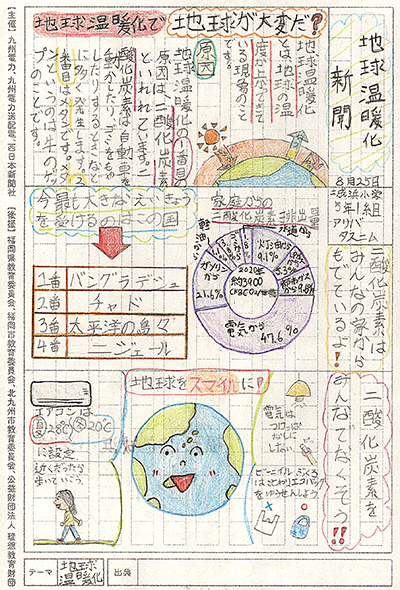 地球温暖化
新聞
8月25日
浜小学
5年1組
アリバ
タスニム
地球温暖化で地球が大変だ?
原因
地球温暖化
とは、地球の温
度が上がってきて
いる現象のこと
です。
地球温暖化の一番目の
原因は二酸化炭素
といわれています。二
酸化炭素は自動車を
動かしたりゴミをもや
したりするときなど
に多く発生します。2
番目はメタンです。メタ
ンというのは牛のゲッ
プのことです。
二酸化炭素は
みんなの家から
もでているよ!
二酸化炭素を
みんなでなくそう!!
家庭からの
二酸化炭素排出量
2020年
約3900
電気から
47.6%
ガソリン
から
21.6%
軽油から
灯油から
9.1%
水道から
今最も大きなえいきょう
を受けるのはこの国
1番 バングラデシュ
2番 チャド
3番 太平洋の島々
4番 ニジェール
地球をスマイルに!
電気は
つけっぱ
なしに
しない
ビーニイルぶくろ
はことわりエコバック
をゆうせんしよう
エアコンは
夏28℃ 冬20℃
に設定
近くだったら
歩いていこう
テーマ
地球
温暖化
出典
【主催】九州電力、九州電力送配電、西日本新聞社
【後援】福岡県教育委員会、福岡市教育委員会、北九州市教育委員会、公益財団法人 理想教育財団